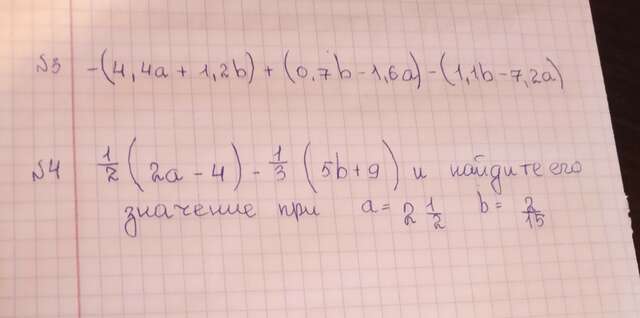 №3 -(4,4a + 1,2b) + (0,7b - 1,6a) - (1,1b - 7,2a)
№4 1/2 (2a - 4) - 1/3 (5b + 9) и найдите его
значение при a = 2 1/2 b = 2/15